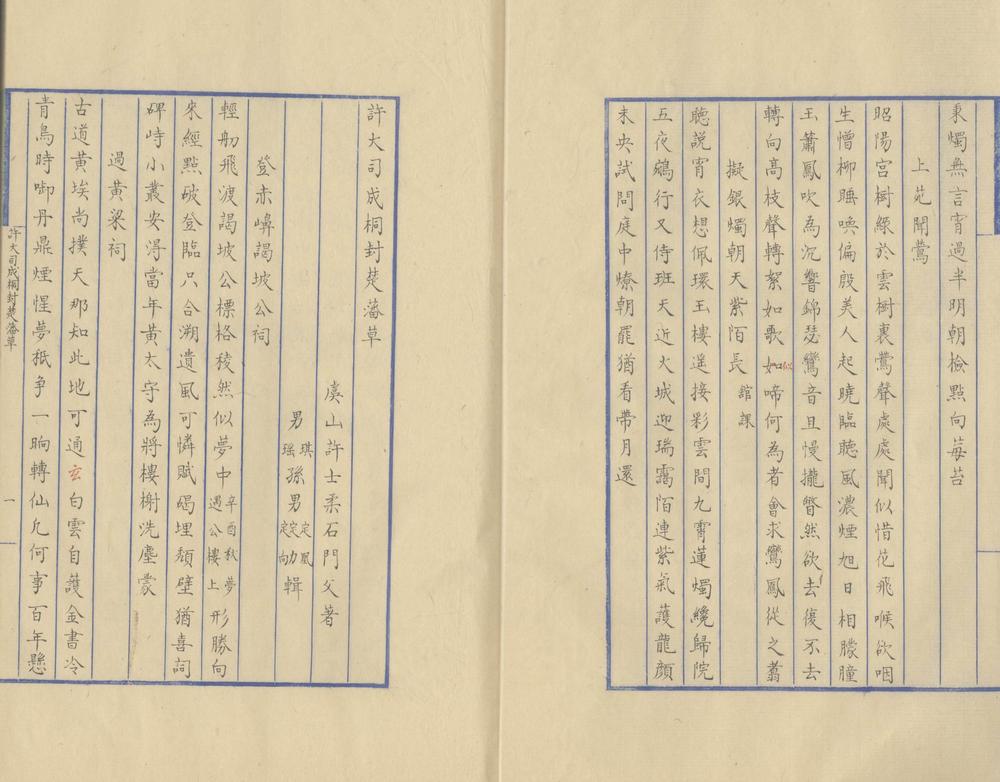 秉燭無言宵過半明朝檢點向莓苔
上苑聞鶯
昭陽宮樹綠於雲樹裏鶯聲處處聞似惜花飛喉欲咽
生憎柳睡喚偏殷美人起曉臨聽風濃煙旭日相朦朣
玉簫鳳吹為沉響錦瑟鸞音且慢攏瞥然欲去復不去
轉向高枝聲轉絮如歌如啼何為者會求鸞鳳從之翥
擬銀燭朝天紫陌長 館課
聽說宵衣想佩環玉樓遥接彩雲間九霄蓮燭纔歸院
五夜鵷行又侍班天近火城迎瑞靄陌連紫氣護龍顔
未央試問庭中燎朝罷猶看帶月還
許大司成桐封楚藩草
虞山許士柔石門父著
男琪瑶孫男定定定鳳劬向輯
登赤嶼謁坡公祠
輕舠飛渡謁坡公標格稜然似夢中辛酉秋夢遇公樓上形勝向
來經點破登臨只合溯遺風可憐賦碣埋頹壁猶喜詞
碑峙小叢安淂當年黃太守為將樓榭洗塵蒙
過黃粱祠
古道黃埃尚撲天那知此地可通玄白雲自護金書冷
青鳥時啣丹鼎煙惺夢秖争一晌轉仙凡何事百年懸
許大司成桐封楚藩草
一